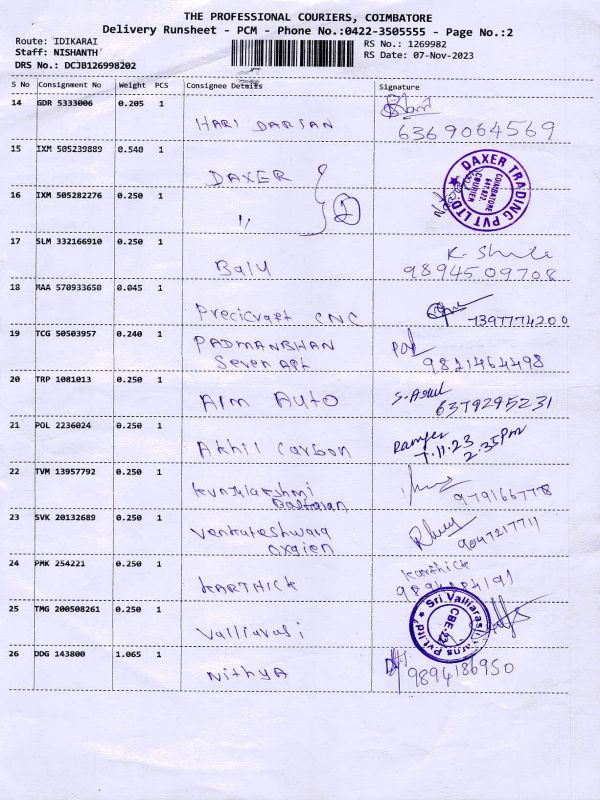 THE PROFESSIONAL COURIERS, COIMBATORE
Delivery Runsheet - PCM - Phone No.:0422-3505555 - Page No.:2
Route: IDIKARAI
Staff: NISHANTH
DRS No.: DCJB126998202
RS No.: 1269982
RS Date: 07-Nov-2023
S No Consignment No Weight PCS Consignee Details Signature
14 GDR 5333006 0.205 1
HARI DARSAN 6369064569
15 IXM 505239889 0.540 1
DAXER
DAXER TRADING PVT LTD
COIMBATORE
641 022.
COURIER
16 IXM 505282276 0.250 1
" 2
17 SLM 332166910 0.250 1
Balu 9894509708
18 MAA 570933650 0.045 1
Precicraft CNC 7397774200
19 TCG 50503957 0.240 1
PADMANBHAN
Seven apt 9821464498
20 TRP 1081013 0.250 1
Aim Auto 6379295231
21 POL 2236024 0.250 1
Akhil Carbon 7.11.23 2.35pm
22 TVM 13957792 0.250 1
9791667778
23 SVK 20132689 0.250 1
Venkateshwara 9047217711
24 PMK 254221 0.250 1
KARTHICK Karthick
25 TMG 200508261 0.250 1
Valliarasi
Sri Valliarasi Yarns Pvt Ltd
CBE-22
26 DDG 143800 1.065 1
Nithya 9894186950